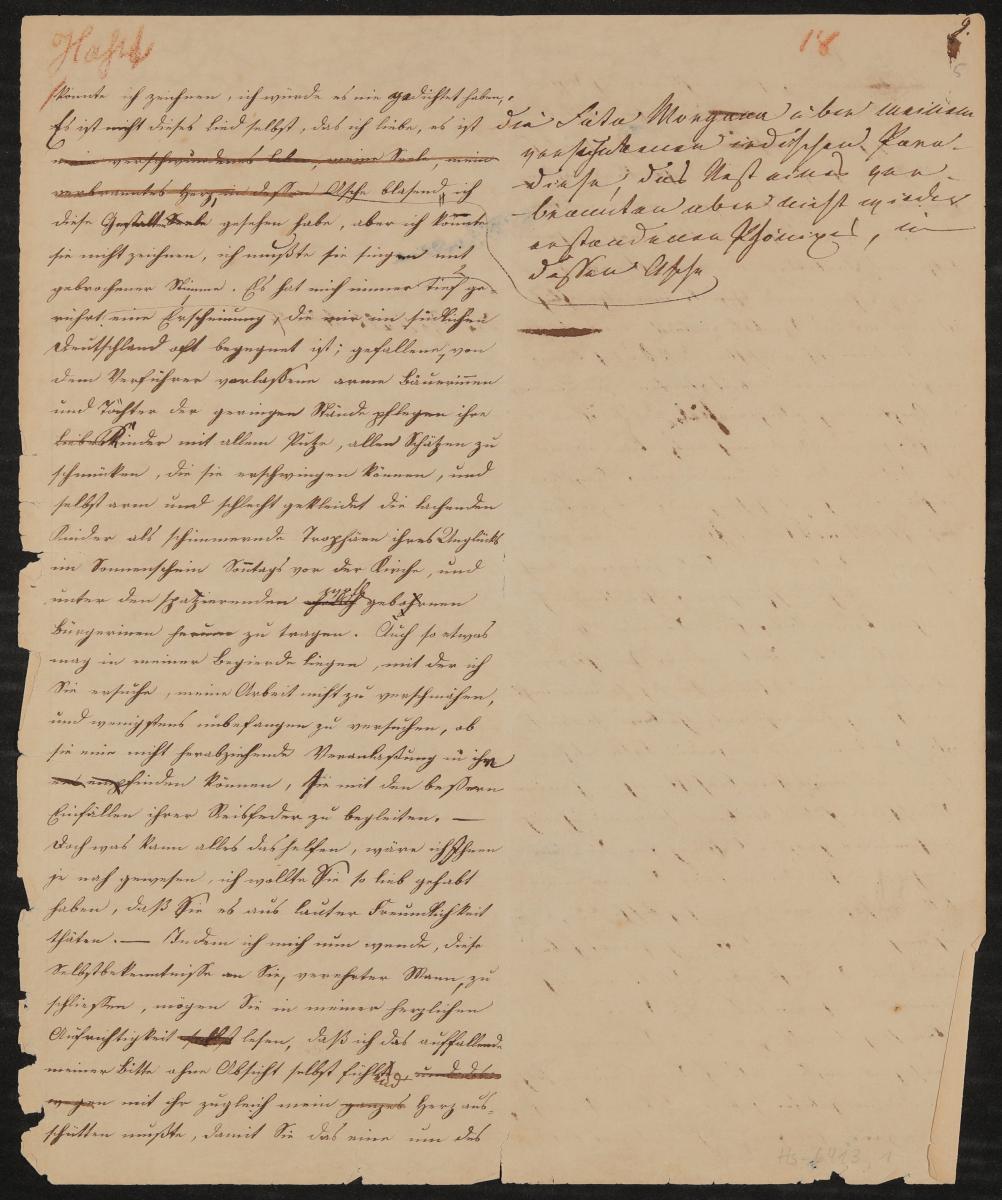 18
9.
5
könnte ich zeichnen, ich würde es nie gedichtet haben,
Es ist nicht dieses Lied selbst, das ich liebe, es ist
mein verschwundenes Leben, meine Seele, mein
verbranntes Herz, in dessen Asche blasend, ich
diese Gestalten gesehen habe, aber ich konnte
sie nicht zeichnen, ich mußte sie singen mit
gebrochener Stimme. Es hat mich immer tief ge-
rührt eine Erscheinung, die mir im südlichen
Deutschland oft begegnet ist; gefallene, von
dem Verführer verlassene arme Bäuerinnen
und Töchter der geringen Stände pflegen ihre
Kinder mit allem Putze, allen Schätzen zu
schmücken, die sie erschwingen können, und
selbst arm und schlecht gekleidet die lachenden
Kinder als schimmernde Trophäen ihres Unglücks
im Sonnenschein Sonntags vor der Kirche, und
unter den spazierenden gebohrnen
Bürgerinen herum zu tragen. Auch so etwas
mag in meiner Begierde liegen, mit der ich
Sie ersuche, meine Arbeit nicht zu verschmähen,
und wenigstens unbefangen zu versuchen, ob
sie eine nicht herabziehende Veranlaßung in ihr
empfinden können, sie mit den bessern
Einfällen ihrer Reisfeder zu begleiten. —
Doch was kann alles das helfen, wäre ich Ihnen
je nah gewesen, ich wollte Sie so lieb gehabt
haben, daß Sie es aus lauter Freundlichkeit
thäten. — Indem ich mich nun wende, diese
Selbstbekenntnisse an Sie, verehrter Mann, zu
schließen, mögen Sie in meiner herzlichen
Aufrichtigkeit selbst lesen, daß ich das auffallende
meiner Bitte ohne Absicht selbst fühle und
wegen mit ihr zugleich mein ganzes Herz aus-
schütten mußte, damit Sie das eine um des
die Fata Morgana über meinem
versunkenen irdischen Para-
diese, das Nest eines ver-
brannten aber nicht wieder
erstandenen Phönixes, in
dessen Asche
Hs-6413, 1